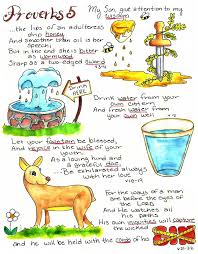 Proverbs 5
My Son, give attention to my
wisdom
...the lips of an adulteress
drip honey,
And smoother than oil is her
speech;
But in the end she is bitter
as wormwood
Sharp as a two-edged sword
v 3-4
DRINK
HERE
Drink water from your
own cistern,
And fresh water from your
own well
v-15
Let your fountain be blessed,
and rejoice in the wife of your
youth.
As a loving hind and
a graceful doe.
Be exhilarated always
with her love
For the ways of a man
are before the eyes of
the LORD,
And He watches all
his paths
His own iniquities will capture
the wicked
and he will be held with the cords of his SIN
v 21-22